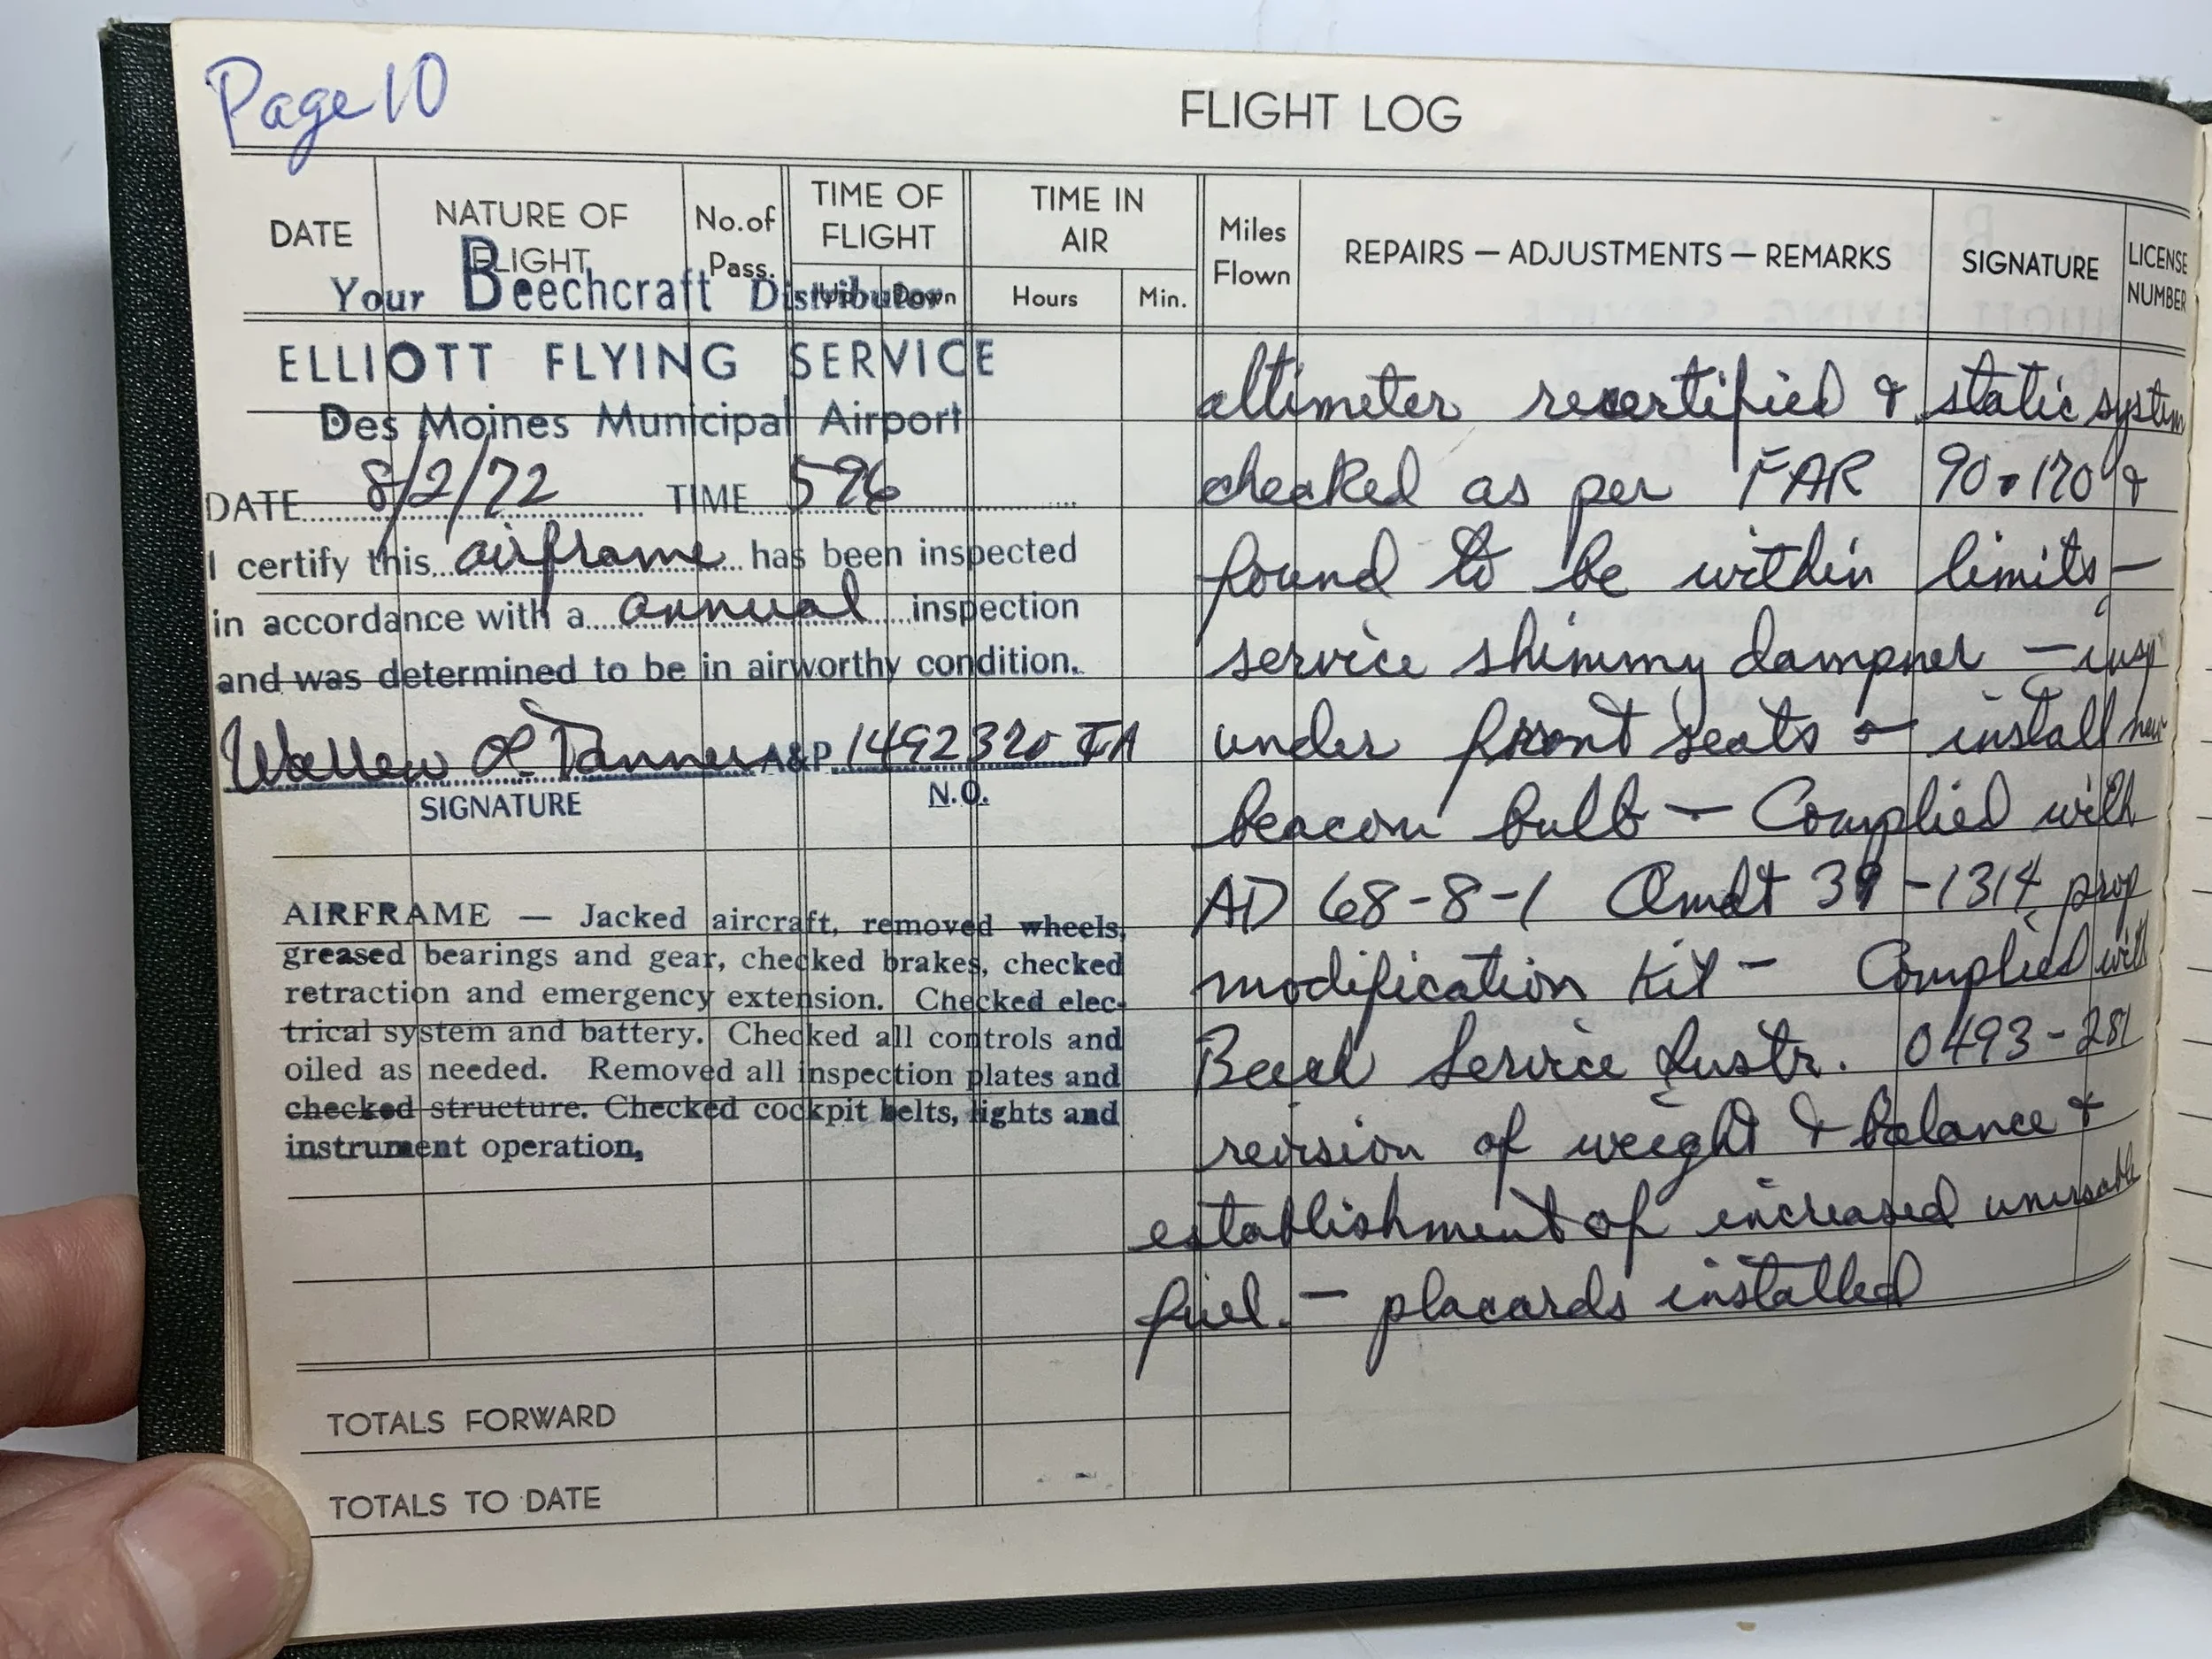 Page 10
FLIGHT LOG
DATE
NATURE OF
FLIGHT
No. of
Pass.
TIME OF
FLIGHT
Up
Down
TIME IN
AIR
Hours
Min.
Miles
Flown
REPAIRS — ADJUSTMENTS — REMARKS
SIGNATURE
LICENSE
NUMBER
Your Beechcraft Distributor
ELLIOTT FLYING SERVICE
Des Moines Municipal Airport
DATE 8/2/72 TIME 596
I certify this airframe has been inspected
in accordance with a annual inspection
and was determined to be in airworthy condition.
Tanner A&P 1492320 IA
SIGNATURE N.O.
AIRFRAME — Jacked aircraft, removed wheels,
greased bearings and gear, checked brakes, checked
retraction and emergency extension. Checked elec-
trical system and battery. Checked all controls and
oiled as needed. Removed all inspection plates and
checked structure. Checked cockpit belts, lights and
instrument operation,
TOTALS FORWARD
TOTALS TO DATE
altimeter recertified & static system
checked as per FAR 90.170 &
found to be within limits —
service shimmy dampner — insp
under front seats — install new
beacon bulb — Complied with
AD 68-8-1 Amdt 39-1314 prop
modification Kit — Complied with
Beech Service Instr. 0493-281
revision of weight & balance &
establishment of increased unusable
fuel. — placards installed